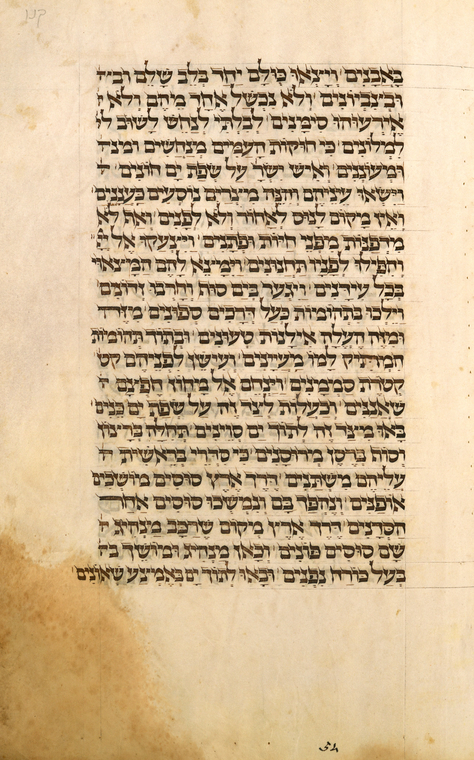 קנו
באבנים ויצאו כולם יחד בלב שלם וביד
וביבוונים ולא נכשל אחד מיהם ולא י
אירעוהו סימנים לבלתי לנחש לשוב לי
למלונים כי חוקות העמים מנחשים ומצד
ומעוננים ואיש ישר על שפת ים חונים
וישאו עיניהם והנה מצרים נוסעים כעננים
ואין מקום לנוס לאחור ולא לפנים ואת לא
מדפנות מפני חיות ופתנים ויצעקו אל יי
והפילו לפניו תחנונים וימצא להם המצאוי
בכל עידונים ויגער בים סוף וחרבו זדונים
וילכו בתהומות כעל דרכים ספונים
ומזה העלה אילנות טעונים ובתוך תהומות
המתיק למו מעינים ועישן לפניהם קט
קטרת סממנים וינחם אל מחוז חפצם
שאננים וכעלות ליצר זה על שפת ים בנים
באו מיצר זה לתוך ים סוינים תחלה
רסות ברסן מרוסנים כי סידרו בראשית
עליהם משתנים דרך ארץ סוסים מושכים
אופנים ונהפך בם ונמשכו סוסים אחר
הסדנים דרך ארץ מקום שרכב מנהיג
שם סוסים פונים וכאן מנהיג ומושך
בעל כורח נפנים ובאו לתוך ים באמצע שאונים
54